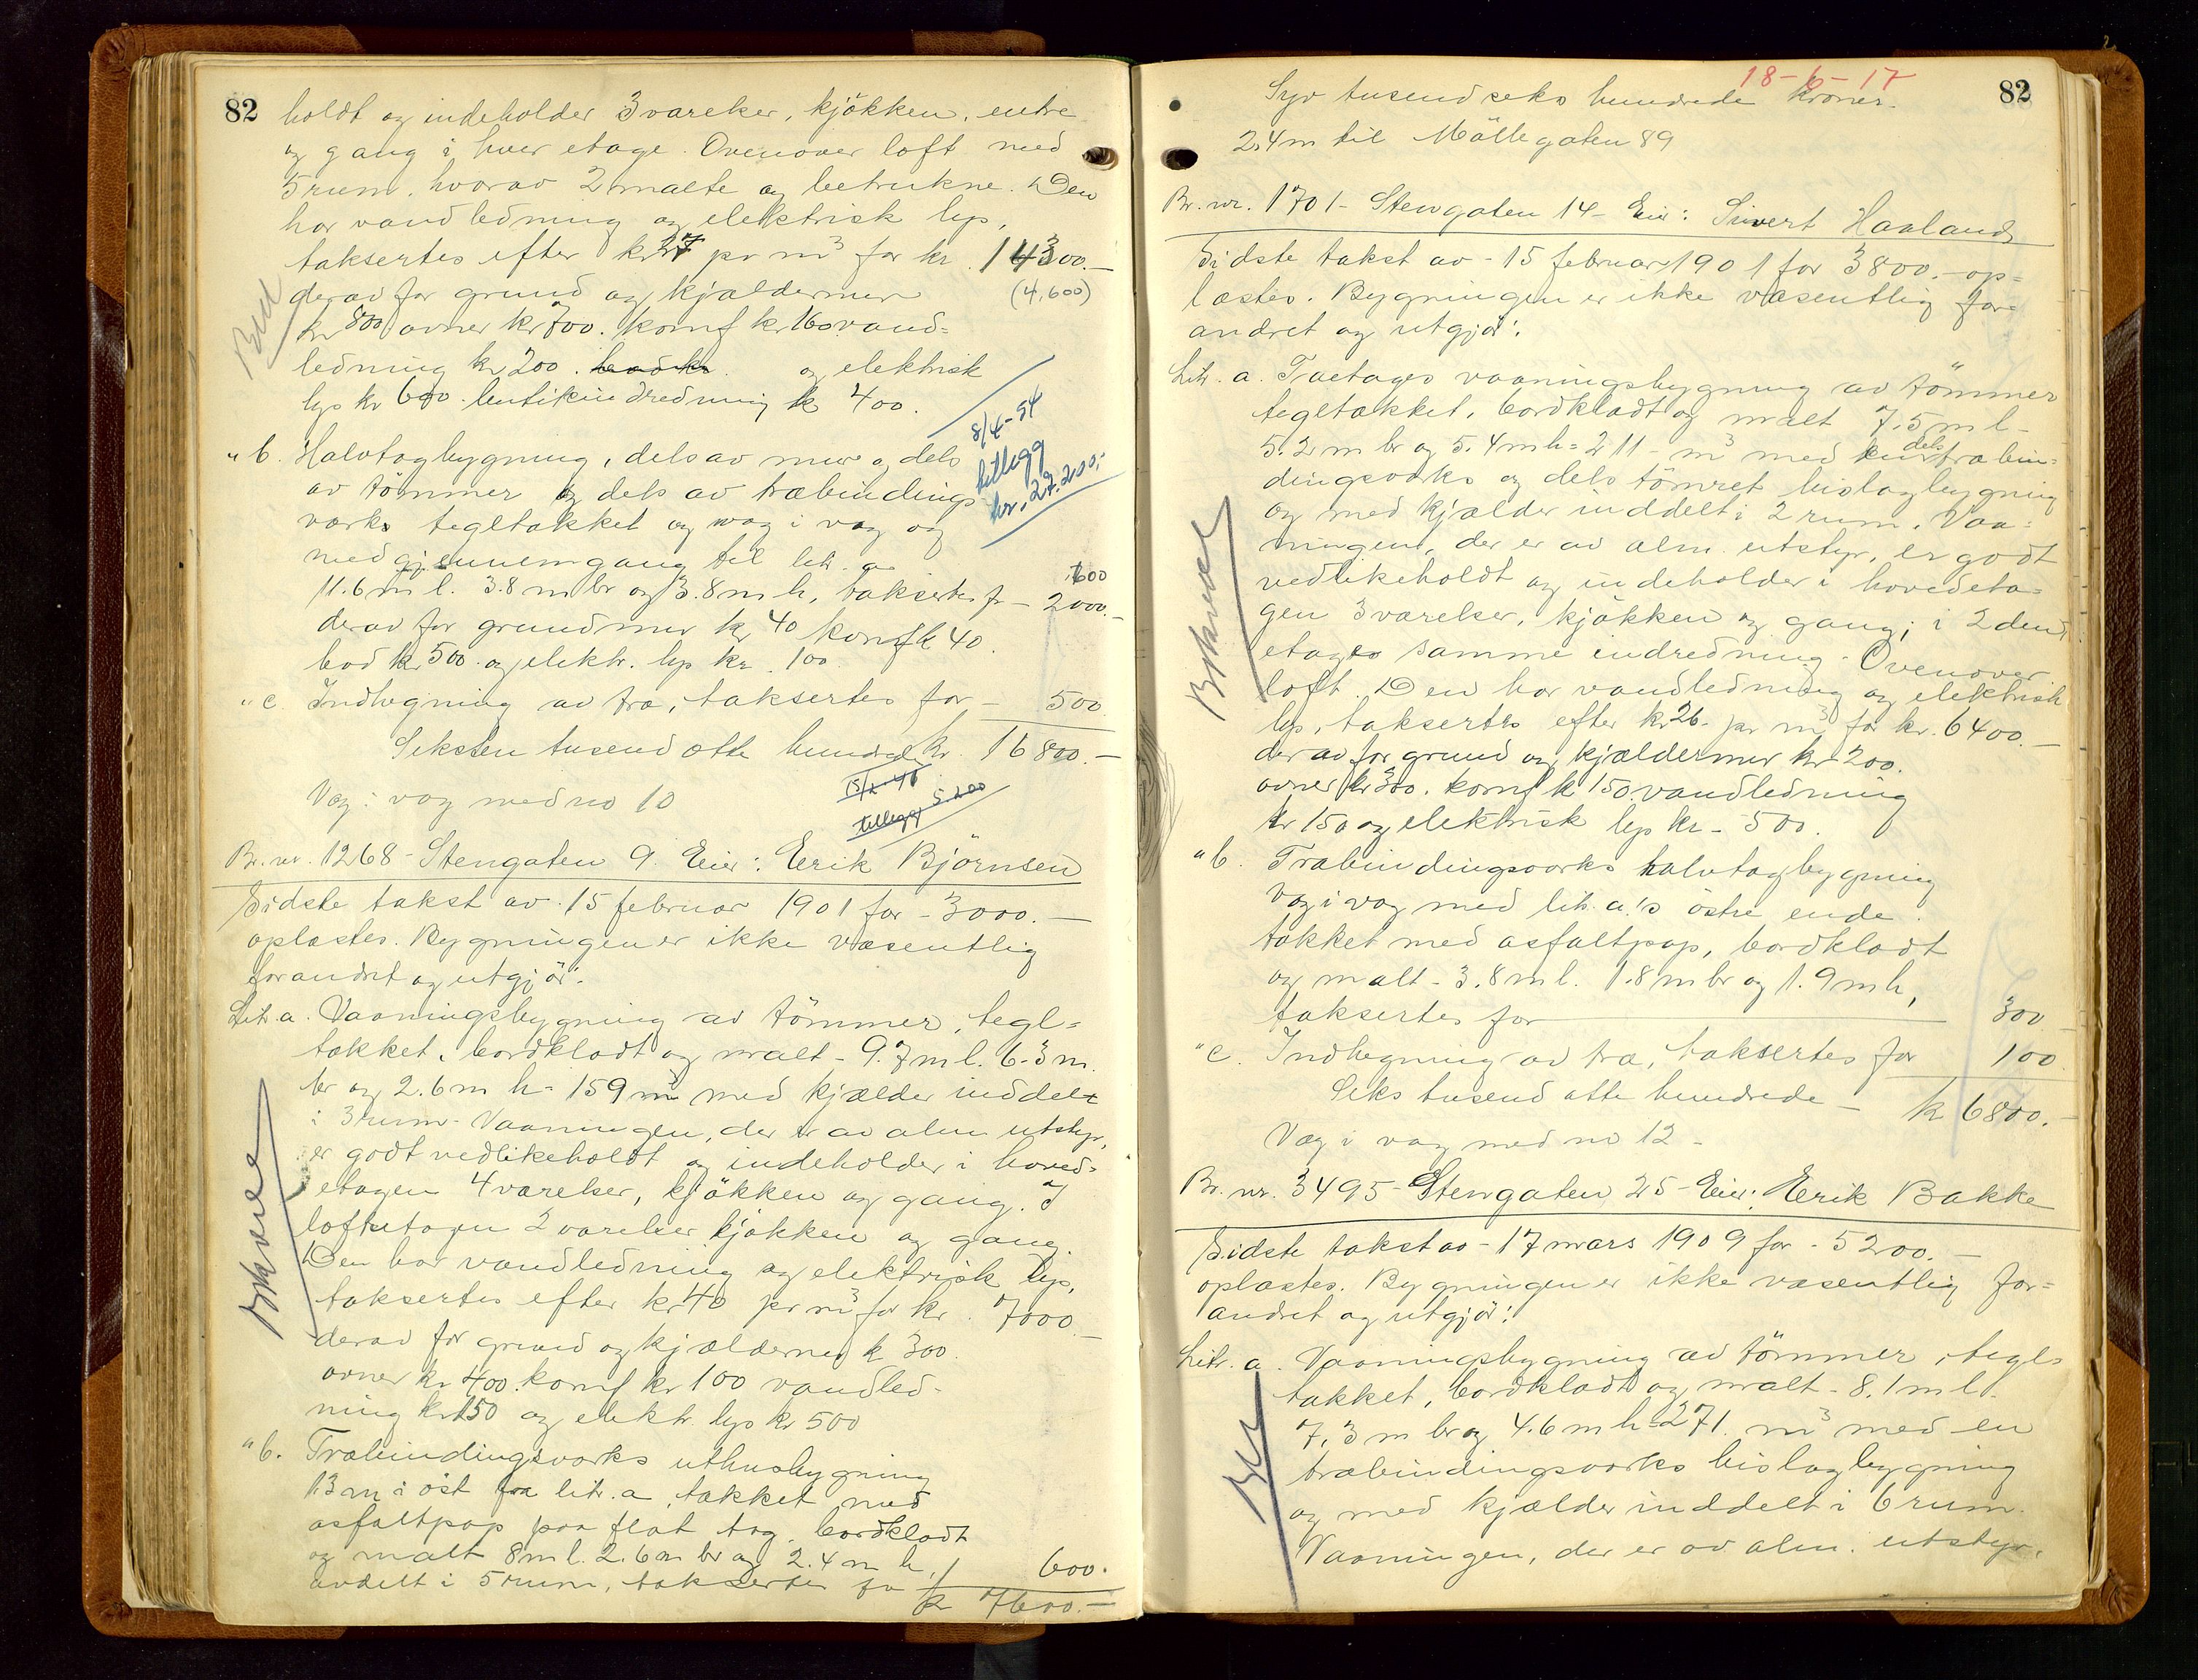 82
holdt og indeholder 3 værelser, kjökken, entre
og gang i hver etage. Ovenover loft med
5 rum, hvorav 2 malte og betrukne. Den
har vandledning og elektrisk lys,
taksertes efter kr 27 pr m³ for kr. 14300.—
derav for grund og kjældermur (4,600)
kr 800 ovner kr 700. komf kr 160 vand=
ledning kr 200. og elektrisk
lys kr 600. butikindredning kr 400.
8/4-54
tillegg
kr. 27.200,-
" b. Halvtagbygning, dels av mur og dels
av tömmer og dels av træbindings
værks tegltækket og væg i væg og
med gjennemgang til litr. a
1600
11.6 m l. 3.8 m br og 3.8 m h, taksertes for — 2000.—
derav for grundmur kr 40 komf kr 40.
bad kr 500 og elektr. lys kr. 100.
" c. Indhegning av træ, taksertes for — 500
Seksten tusend otte hundrede kr. 16800.—
Væg i væg med no 10
tillegg 5200
Br. nr. 1268 - Stengaten 9. Eier: Eerik Björnsen
Sidste takst av 15 februar 1901 for - 3000.—
oplæstes. Bygningen er ikke væsentlig
forandret og utgjör:
Litr. a. Vaaningsbygning av tömmer, tegl=
tækket, bordklædt og malt - 9.7 m l. 6.3 m.
br og 2.6 m h = 159 m³ med kjælder inddelt
i 3 rum - Vaaningen, der er av alm utstyr,
er godt vedlikeholdt og indeholder i hoved=
etagen 4 værelser, kjökken og gang. I
loftsetagen 2 værelser kjökken og gang.
Den har vandledning og elektrisk lys,
taksertes efter kr 40 pr m³ for kr. 7000.—
derav for grund og kjældermur kr 300.
ovner kr 400. komf kr 100 vandled-
ning kr 150 og elektr. lys kr 500
" b. Træbindingsværks uthusbygning
13 m i öst fra litr. a, tækket med
asfaltpap paa flat tag. bordklædt
og malt 8 m l. 2.6 m br og 2.4 m h,
avdelt i 5 rum, taksertes for 600.
kr 7600.—
18-6-17
82
Syv tusend seks hundrede kroner.
2.4 m til Möllegaten 89
Br. nr. 1701 - Stengaten 14 - Eier: Sivert Haaland
Sidste takst av - 15 februar 1901 for 3800.— op=
læstes. Bygningen er ikke væsentlig for=
andret og utgjör:
Litr. a. Toetages vaaningsbygning av tömmer
tegltækket, bordklædt og malt 7.5 m l -
5.2 m br og 5.4 m h = 211 - m³ med dels træbin=
dingsværks og dels tömret bislagbygning
og med kjælder inddelt i 2 rum. Vaa=
ningen, der er av alm. utstyr, er godt
vedlikeholdt og indeholder i hovedeta=
gen 3 værelser, kjökken og gang; i 2 den
etages samme indredning. Ovenover
loft. Den har vandledning og elektrisk
lys, taksertes efter kr 26 - pr m³ for kr. 6400.—
derav for grund og kjældermur kr 200.
ovner kr 300. komf kr 150. vandledning
kr 150 og elektrisk lys kr - 500.
" b. Træbindingsværks halvtagbygning
væg i væg med litr. a.'s östre ende.
tækket med asfaltpap, bordklædt
og malt - 3.8 m l. 1.8 m br og 1.9 m h,
taksertes for 300
" c. Indhegning av træ, taksertes for 100
Seks tusend otte hundrede — kr 6800.—
Væg i væg med no 12 -
Br. nr. 3495 - Stengaten 25 - Eier: Eerik Bakke
Sidste takst av - 17 mars 1909 for - 5200.—
oplæstes. Bygningen er ikke væsentlig for=
andret og utgjör:
Litr. a. Vaaningsbygning av tömmer, tegl=
tækket, bordklædt og malt - 8.1 m l.
7.3 m br og 4.6 m h = 271. m³ med en
træbindingsværks bislagbygning
og med kjælder inddelt i 6 rum.
Vaaningen, der er av alm. utstyr,